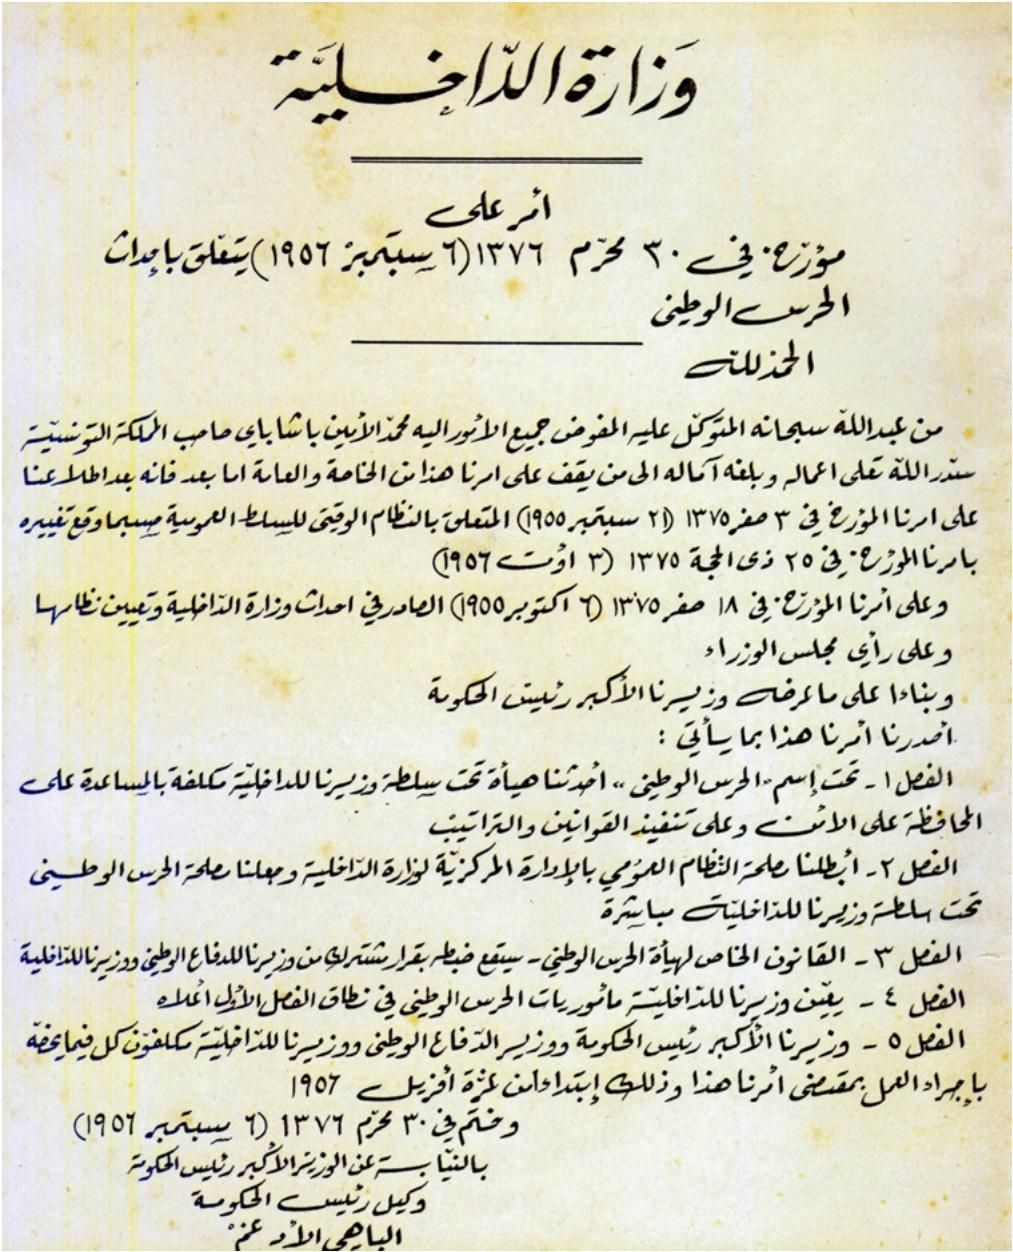 وزارة الدّاخليّة
أمر على
مؤرّخ في ٣٠ محرّم ١٣٧٦ (٦ سبتمبر ١٩٥٦) يتعلّق بإحداث
الحرس الوطني
الحمد للّه
من عبد اللّه سبحانه المتوكّل عليه المفوض جميع الأمور اليه محمّد الأمين باشا باي صاحب المملكة التونسيّة
سدّد اللّه تعلى اعماله وبلغه آماله الى من يقف على امرنا هذا من الخاصة والعامة اما بعد فانه بعد اطلاعنا
على امرنا المؤرخ في ٣ صفر ١٣٧٥ (٢١ سبتمبر ١٩٥٥) المتعلق بالنظام الوقتي للسلط العمومية حسبما وقع تغييره
بامرنا المؤرّخ في ٢٥ ذى الحجة ١٣٧٥ (٣ اوت ١٩٥٦)
وعلى أمرنا المؤرّخ في ١٨ صفر ١٣٧٥ (٦ اكتوبر ١٩٥٥) الصادر في احداث وزارة الدّاخلية وتعيين نظامها
وعلى رأي مجلس الوزراء
وبناءا على ما عرضه وزيرنا الأكبر رئيس الحكومة
أصدرنا أمرنا هذا بما يأتي :
الفصل ١ - تحت إسم "الحرس الوطني" أحدثنا هيأة تحت سلطة وزيرنا للداخليّة مكلفة بالمساعدة على
المحافظة على الأمن وعلى تنفيذ القوانين والتراتيب
الفصل ٢ - أبطلنا مصلحة النّظام العمومي بالإدارة المركزيّة لوزارة الدّاخلية وجعلنا مصلحة الحرس الوطني
تحت سلطة وزيرنا للدّاخليّة مباشرة
الفصل ٣ - القانون الخاص لهيأة الحرس الوطني - سيقع ضبطه بقرار مشترك من وزيرنا للدفاع الوطني ووزيرنا للدّاخلية
الفصل ٤ - يعيّن وزيرنا للدّاخليّة مأموريات الحرس الوطني في نطاق الفصل الأول أعلاه
الفصل ٥ - وزيرنا الأكبر رئيس الحكومة ووزير الدّفاع الوطني ووزيرنا للدّاخليّة مكلفون كل فيما يخصّه
بإجراء العمل بمقتضى أمرنا هذا وذلك إبتداءا من غرّة أفريل ١٩٥٦
وختم في ٣٠ محرّم ١٣٧٦ (٦ سبتمبر ١٩٥٦)
بالنّيابة عن الوزير الأكبر رئيس الحكومة
وكيل رئيس الحكومة
الباهي الأدغم